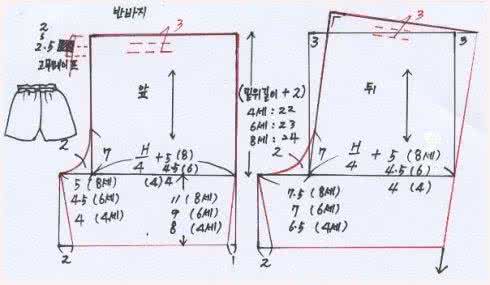 반바지
3
2
2.5
고무테이프
앞
2
7
H/4 + 5 (8)
4.5 (6)
(4) 4
5 (8세)
4.5 (6세)
4 (4세)
11 (8세)
9 (6세)
8 (4세)
2
1
(밑위길이 + 2)
4세 : 22
6세 : 23
8세 : 24
3
3
3
뒤
2
7
H/4 + 5 (8세)
4.5 (6)
4 (4)
7.5 (8세)
7 (6세)
6.5 (4세)
2